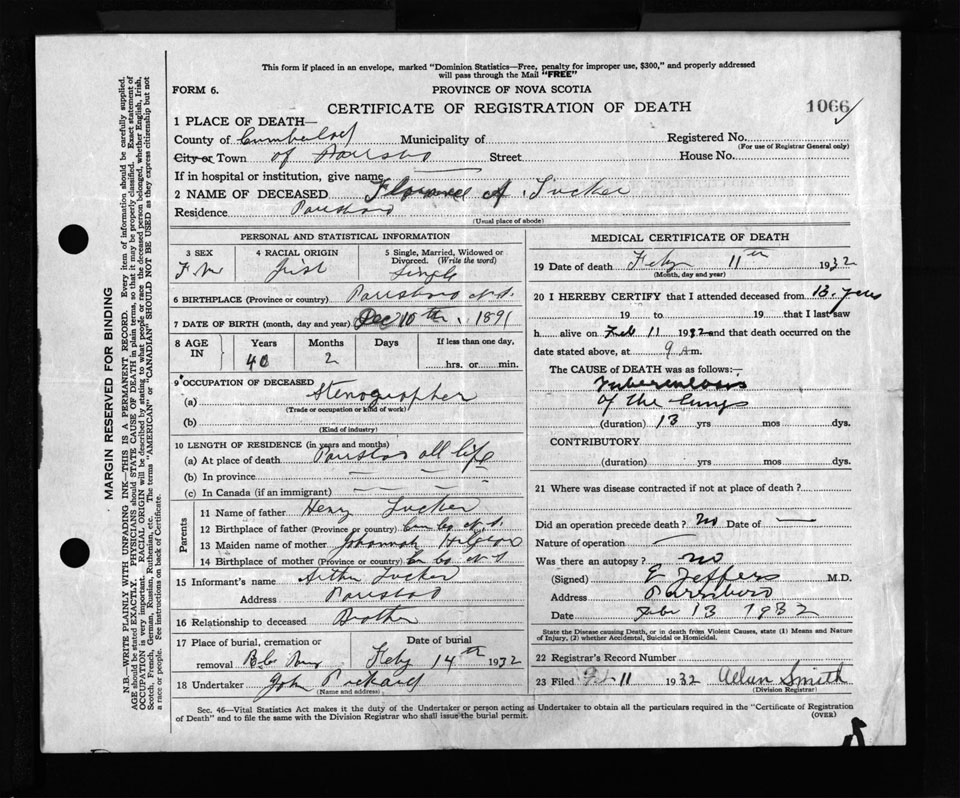 This form if placed in an envelope, marked "Dominion Statistics—Free, penalty for improper use, $300," and properly addressed
will pass through the Mail "FREE"
FORM 6. PROVINCE OF NOVA SCOTIA
CERTIFICATE OF REGISTRATION OF DEATH 1066
1 PLACE OF DEATH—
County of Cumberland Municipality of Registered No.
(For use of Registrar General only)
City or Town of Parrsboro Street House No.
If in hospital or institution, give name
2 NAME OF DECEASED Florance A Tucker
Residence Parrsboro
(Usual place of abode)
PERSONAL AND STATISTICAL INFORMATION
3 SEX 4 RACIAL ORIGIN 5 Single, Married, Widowed or Divorced. (Write the word)
Irish Single
6 BIRTHPLACE (Province or country) Parrsboro N.S.
7 DATE OF BIRTH (month, day and year) Dec 10th, 1891
8 AGE IN Years Months Days If less than one day,
40 2 hrs. or min.
9 OCCUPATION OF DECEASED
(a) Stenographer
(Trade or occupation or kind of work)
(b)
(Kind of industry)
10 LENGTH OF RESIDENCE (in years and months)
(a) At place of death Parrsboro all life
(b) In province
(c) In Canada (if an immigrant)
Parents
11 Name of father Henry Tucker
12 Birthplace of father (Province or country) N.S.
13 Maiden name of mother Johannah
14 Birthplace of mother (Province or country) N.S.
15 Informant's name Arthur Tucker
Address Parrsboro
16 Relationship to deceased Brother
17 Place of burial, cremation or Date of burial
removal Feby 14th 1932
18 Undertaker John Pickard
(Name and address)
MEDICAL CERTIFICATE OF DEATH
19 Date of death Feby 11th 1932
(Month, day and year)
20 I HEREBY CERTIFY that I attended deceased from 13 years
19 to 19 that I last saw
h alive on Feb 11 1932 and that death occurred on the
date stated above, at 9 a.m.
The CAUSE of DEATH was as follows:—
Tuberculosis
of the lungs
(duration) 13 yrs mos dys.
CONTRIBUTORY
(duration) yrs mos dys.
21 Where was disease contracted if not at place of death?
Did an operation precede death? No Date of —
Nature of operation —
Was there an autopsy? no
(Signed) E Jeffers M.D.
Address Parrsboro
Date Feb 13 1932
State the Disease causing Death, or in death from Violent Causes, state (1) Means and Nature
of Injury, (2) whether Accidental, Suicidal or Homicidal.
22 Registrar's Record Number
23 Filed 11 1932 Smith
(Division Registrar)
Sec. 46—Vital Statistics Act makes it the duty of the Undertaker or person acting as Undertaker to obtain all the particulars required in the "Certificate of Registration
of Death" and to file the same with the Division Registrar who shall issue the burial permit. (OVER)
MARGIN RESERVED FOR BINDING
N.B.—WRITE PLAINLY WITH UNFADING INK—THIS IS A PERMANENT RECORD. Every item of information should be carefully supplied.
AGE should be stated EXACTLY. PHYSICIANS should STATE CAUSE OF DEATH in plain terms, so that it may be properly classified. Exact statement of
OCCUPATION is very important. RACIAL ORIGIN will be described by stating to what people or race the deceased person belonged, whether English, Irish,
Scotch, French, German, Russian, Ruthenian, etc. The terms "AMERICAN" or "CANADIAN" SHOULD NOT BE USED as they express citizenship but not
a race or people. See instructions on back of Certificate.